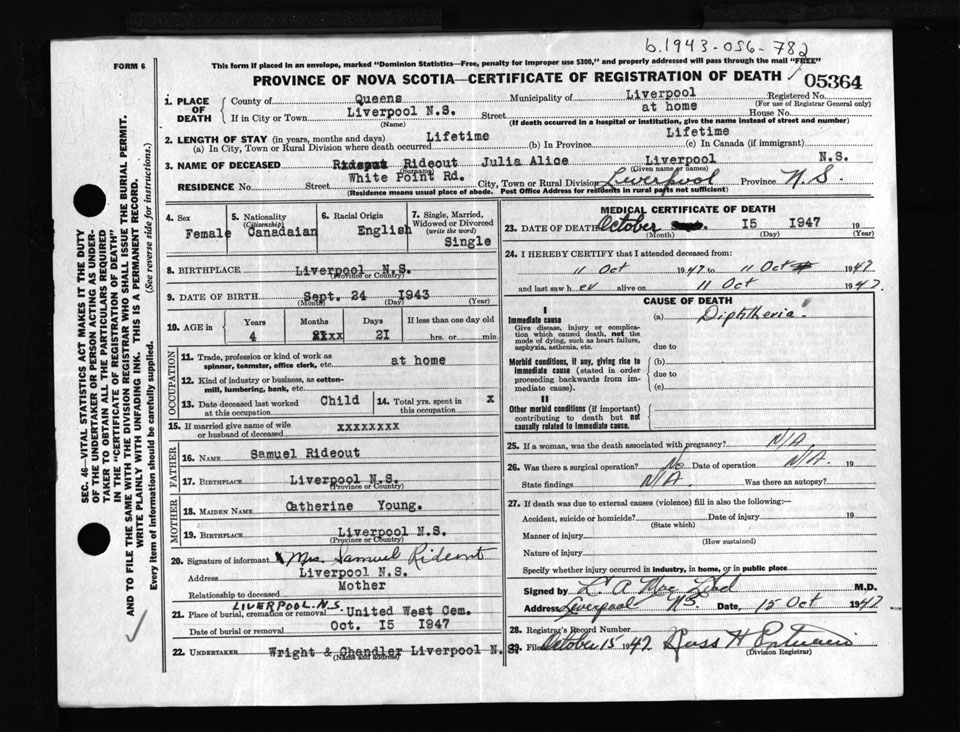 b.1943-056-782
FORM 6
This form if placed in an envelope, marked "Dominion Statistics—Free, penalty for improper use $300," and properly addressed will pass through the mail "FREE"
PROVINCE OF NOVA SCOTIA—CERTIFICATE OF REGISTRATION OF DEATH
05364
SEC. 46—VITAL STATISTICS ACT MAKES IT THE DUTY
OF THE UNDERTAKER OR PERSON ACTING AS UNDER-
TAKER TO OBTAIN ALL THE PARTICULARS REQUIRED
IN THE "CERTIFICATE OF REGISTRATION OF DEATH"
AND TO FILE THE SAME WITH THE DIVISION REGISTRAR WHO SHALL ISSUE THE BURIAL PERMIT.
WRITE PLAINLY WITH UNFADING INK. THIS IS A PERMANENT RECORD.
Every item of information should be carefully supplied. (See reverse side for instructions.)
1. PLACE OF DEATH
County of Queens Municipality of Liverpool Registered No.
(For use of Registrar General only)
If in City or Town Liverpool N.S. Street at home House No.
(Name) (If death occurred in a hospital or institution, give the name instead of street and number)
2. LENGTH OF STAY (in years, months and days)
(a) In City, Town or Rural Division where death occurred Lifetime (b) In Province Lifetime (c) In Canada (if immigrant)
3. NAME OF DECEASED Rideout Julia Alice Liverpool N.S.
(Surname) (Given name or names)
RESIDENCE No. Street White Point Rd. City, Town or Rural Division Liverpool Province N.S.
(Residence means usual place of abode. Post Office Address for residents in rural parts not sufficient)
4. Sex Female
5. Nationality (Citizenship) Canadaian
6. Racial Origin English
7. Single, Married, Widowed or Divorced (write the word) Single
8. BIRTHPLACE Liverpool N.S.
(Province or Country)
9. DATE OF BIRTH Sept. 24 1943
(Month) (Day) (Year)
10. AGE in Years Months Days If less than one day old
4 xx 21 hrs. or min.
OCCUPATION
11. Trade, profession or kind of work as spinner, teamster, office clerk, etc. at home
12. Kind of industry or business, as cotton-mill, lumbering, bank, etc.
13. Date deceased last worked at this occupation Child
14. Total yrs. spent in this occupation x
15. If married give name of wife or husband of deceased xxxxxxxx
FATHER
16. NAME Samuel Rideout
17. BIRTHPLACE Liverpool N.S.
(Province or Country)
MOTHER
18. MAIDEN NAME Catherine Young.
19. BIRTHPLACE Liverpool N.S.
(Province or Country)
20. Signature of informant x Mrs. Samuel Rideout
Address Liverpool N.S.
Relationship to deceased Mother
21. Place of burial, cremation or removal LIVERPOOL. N.S. United West Cem.
Date of burial or removal Oct. 15 1947
22. UNDERTAKER Wright & Chandler Liverpool N.S.
(Name and address)
MEDICAL CERTIFICATE OF DEATH
23. DATE OF DEATH October 15 1947 19
(Month) (Day) (Year)
24. I HEREBY CERTIFY that I attended deceased from:
11 Oct 1947 to 11 Oct 1947
and last saw her alive on 11 Oct 1947
CAUSE OF DEATH
I
Immediate cause
Give disease, injury or complication which caused death, not the mode of dying, such as heart failure, asphyxia, asthenia, etc.
(a) Diphtheria
due to
Morbid conditions, if any, giving rise to immediate cause (stated in order proceeding backwards from immediate cause).
(b)
due to
(c)
II
Other morbid conditions (if important) contributing to death but not causally related to immediate cause.
25. If a woman, was the death associated with pregnancy? N/A
26. Was there a surgical operation? No Date of operation N/A. 19
State findings N/A. Was there an autopsy?
27. If death was due to external causes (violence) fill in also the following:—
Accident, suicide or homicide? Date of injury 19
(State which)
Manner of injury
(How sustained)
Nature of injury
Specify whether injury occurred in industry, in home, or in public place
Signed by L. A. Mac Leod M.D.
Address Liverpool N.S. Date, 15 Oct 1947
28. Registrar's Record Number
29. Filed October 15 1947 Ross H
(Division Registrar)